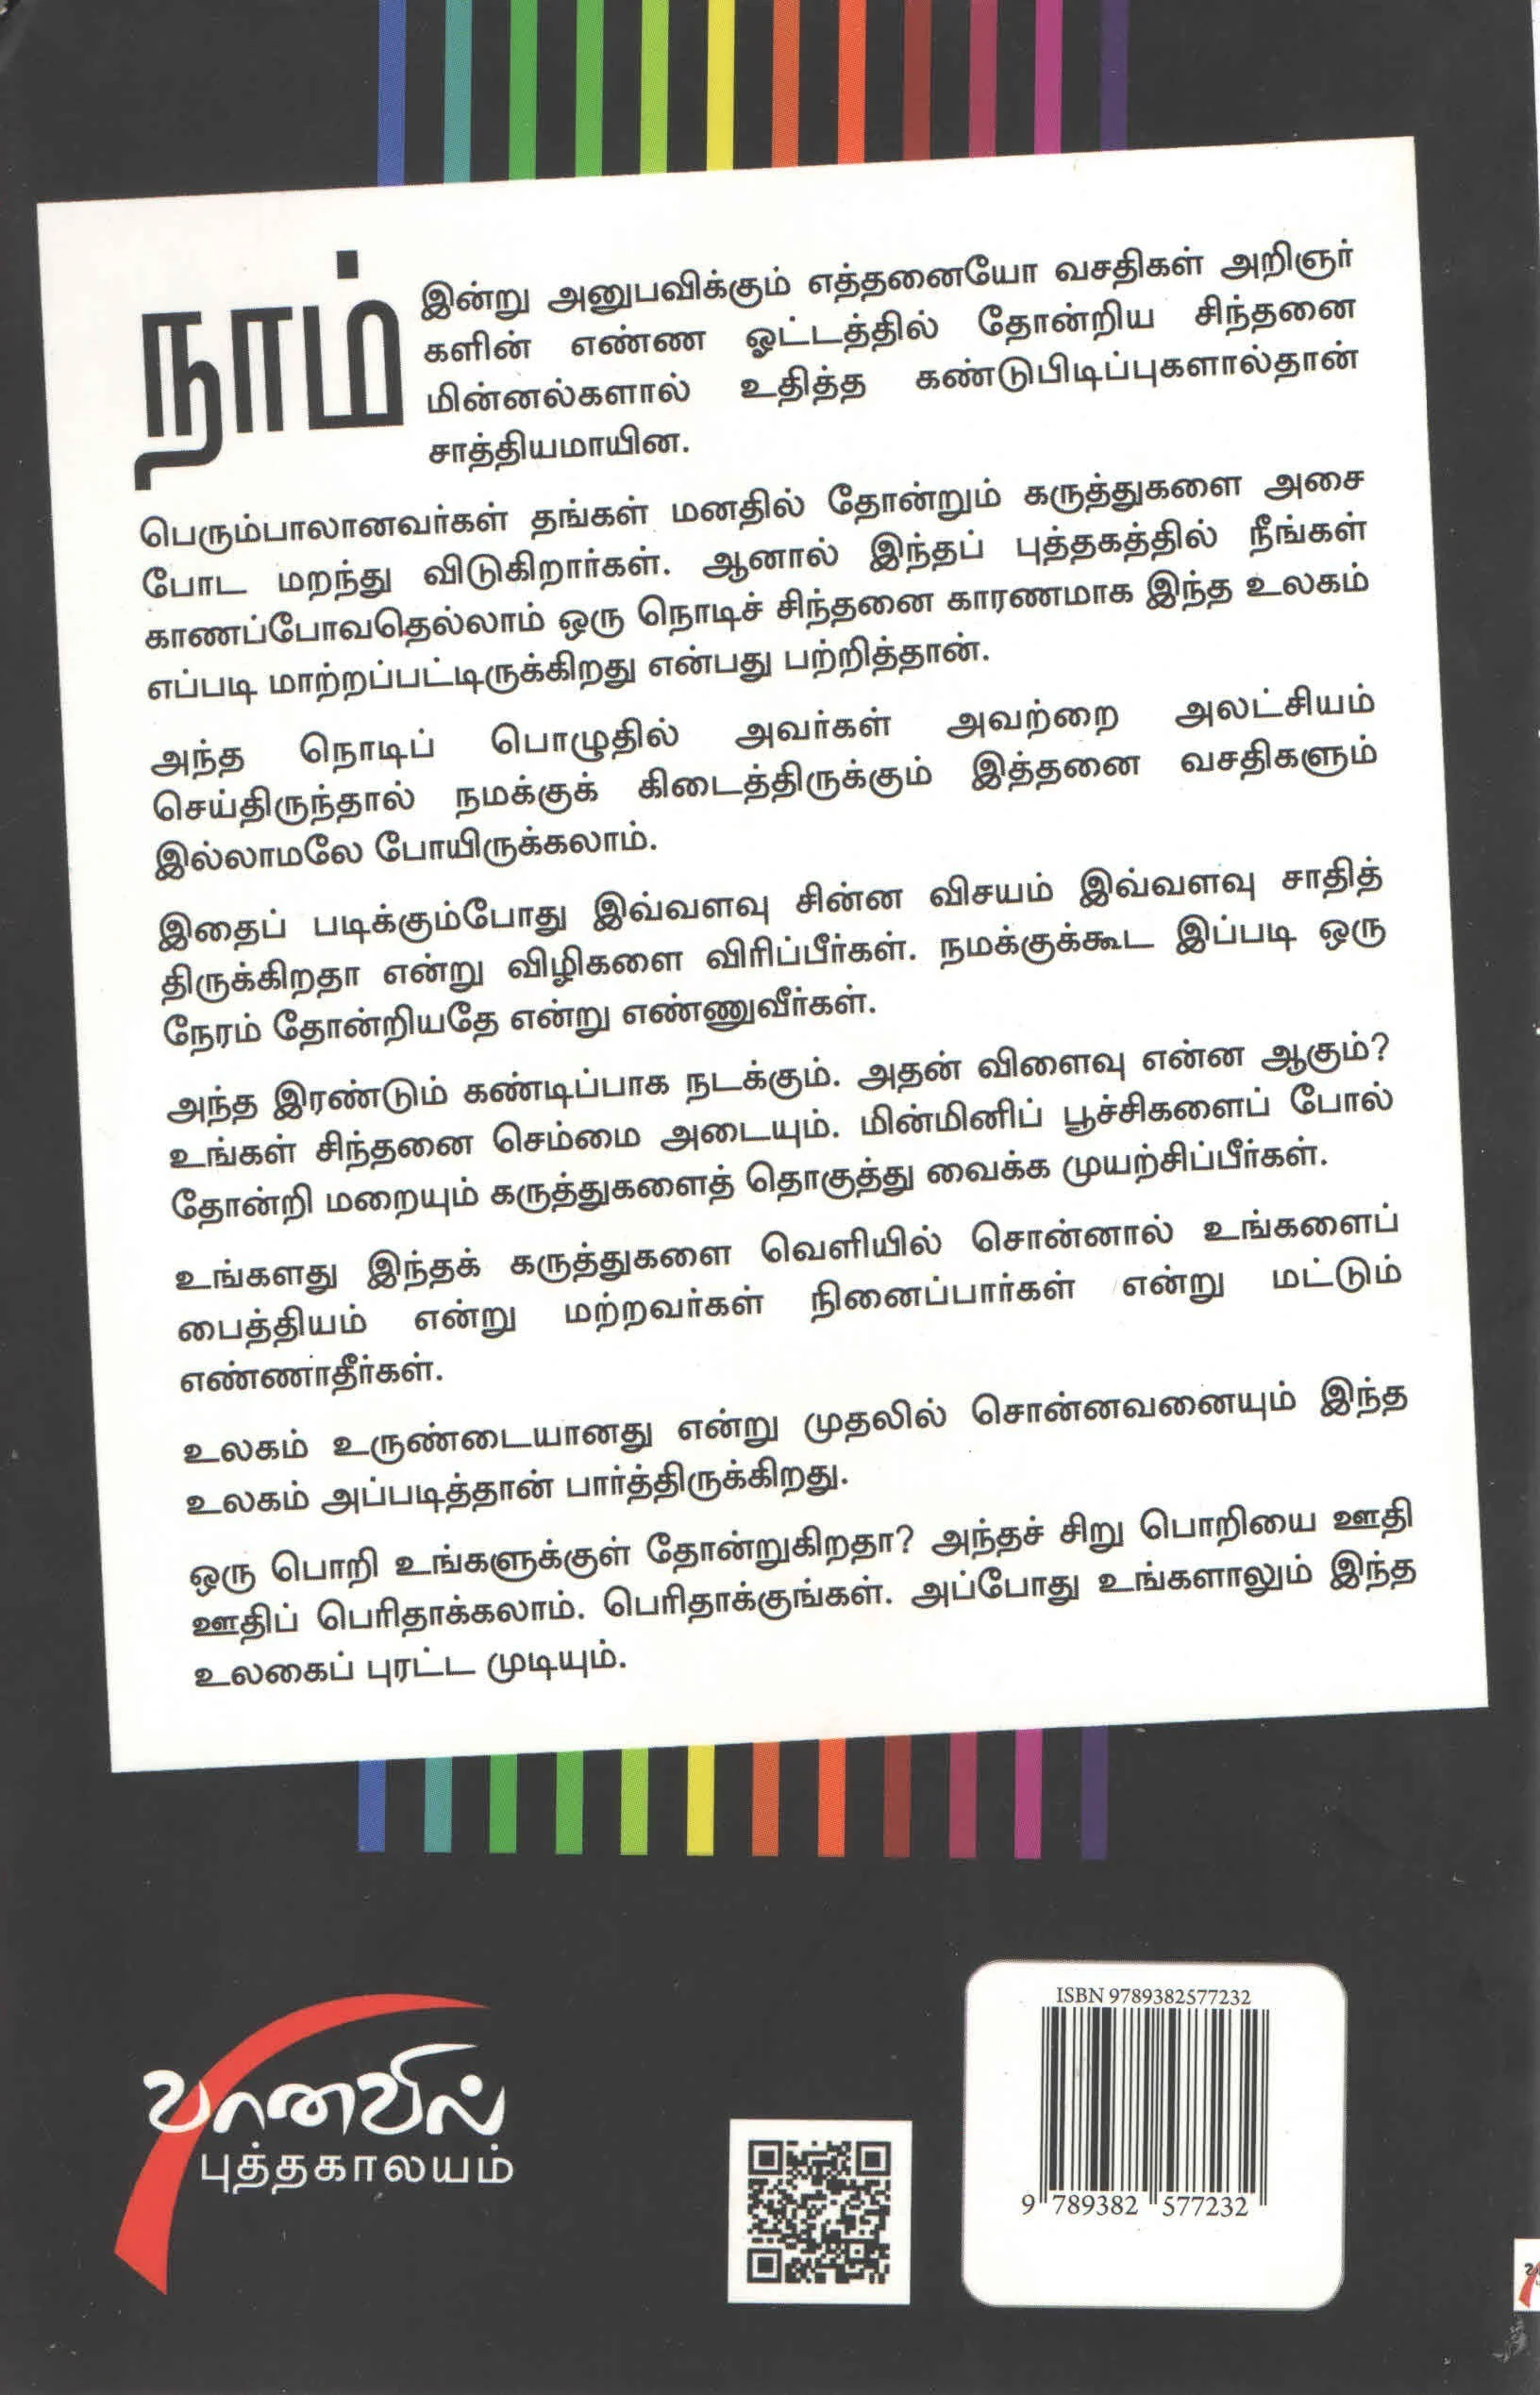 நாம் இன்று அனுபவிக்கும் எத்தனையோ வசதிகள் அறிஞர்
களின் எண்ண ஓட்டத்தில் தோன்றிய சிந்தனை
மின்னல்களால் உதித்த கண்டுபிடிப்புகளால்தான்
சாத்தியமாயின.
பெரும்பாலானவர்கள் தங்கள் மனதில் தோன்றும் கருத்துகளை அசை
போட மறந்து விடுகிறார்கள். ஆனால் இந்தப் புத்தகத்தில் நீங்கள்
காணப்போவதெல்லாம் ஒரு நொடிச் சிந்தனை காரணமாக இந்த உலகம்
எப்படி மாற்றப்பட்டிருக்கிறது என்பது பற்றித்தான்.
அந்த நொடிப் பொழுதில் அவர்கள் அவற்றை அலட்சியம்
செய்திருந்தால் நமக்குக் கிடைத்திருக்கும் இத்தனை வசதிகளும்
இல்லாமலே போயிருக்கலாம்.
இதைப் படிக்கும்போது இவ்வளவு சின்ன விசயம் இவ்வளவு சாதித்
திருக்கிறதா என்று விழிகளை விரிப்பீர்கள். நமக்குக்கூட இப்படி ஒரு
நேரம் தோன்றியதே என்று எண்ணுவீர்கள்.
அந்த இரண்டும் கண்டிப்பாக நடக்கும். அதன் விளைவு என்ன ஆகும்?
உங்கள் சிந்தனை செம்மை அடையும். மின்மினிப் பூச்சிகளைப் போல்
தோன்றி மறையும் கருத்துகளைத் தொகுத்து வைக்க முயற்சிப்பீர்கள்.
உங்களது இந்தக் கருத்துகளை வெளியில் சொன்னால் உங்களைப்
பைத்தியம் என்று மற்றவர்கள் நினைப்பார்கள் என்று மட்டும்
எண்ணாதீர்கள்.
உலகம் உருண்டையானது என்று முதலில் சொன்னவனையும் இந்த
உலகம் அப்படித்தான் பார்த்திருக்கிறது.
ஒரு பொறி உங்களுக்குள் தோன்றுகிறதா? அந்தச் சிறு பொறியை ஊதி
ஊதிப் பெரிதாக்கலாம். பெரிதாக்குங்கள். அப்போது உங்களாலும் இந்த
உலகைப் புரட்ட முடியும்.
வானவில்
புத்தகாலயம்
ISBN 9789382577232
9 789382 577232